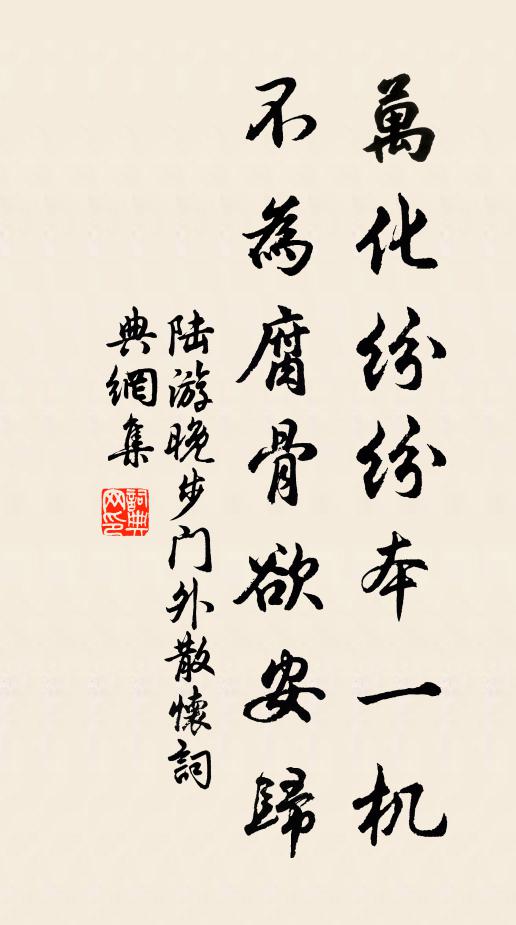 萬化紛紛本一机
不為腐骨欲安歸
陆游晚步门外散懷詞
典網集
詞典
网印